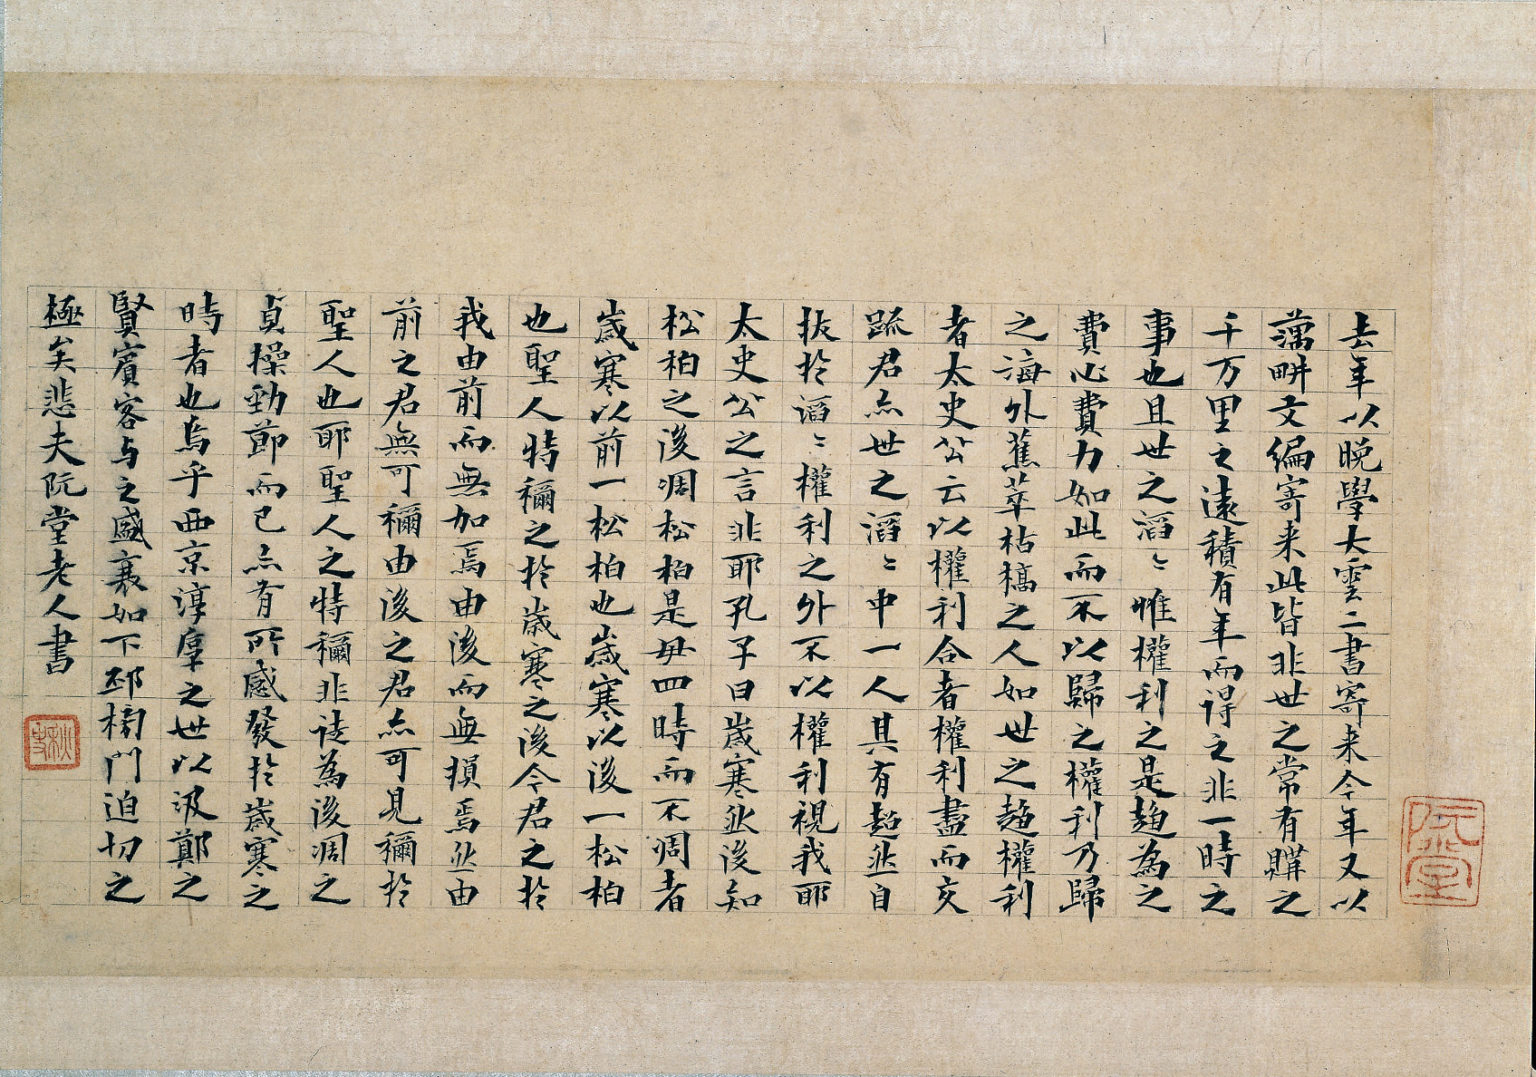 阮堂
去年以晚學大雲二書寄来今年又以
藕畊文編寄来此皆非世之常有購之
千万里之遠積有年而得之非一時之
事也且世之滔〻惟權利之是趨為之
費心費力如此而不以歸之權利乃歸
之海外蕉萃枯槁之人如世之趨權利
者太史公云以權利合者權利盡而交
疏君亦世之滔〻中一人其有超然自
拔於滔〻權利之外不以權利視我耶
太史公之言非耶孔子曰歲寒然後知
松柏之後凋松柏是毋四時而不凋者
歲寒以前一松柏也歲寒以後一松柏
也聖人特稱之於歲寒之後今君之於
我由前而無加焉由後而無損焉然由
前之君無可稱由後之君亦可見稱於
聖人也耶聖人之特稱非徒為後凋之
貞操勁節而已亦有所感發於歲寒之
時者也烏乎西京淳厚之世以汲鄭之
賢賓客与之盛衰如下邳榜門迫切之
極矣悲夫阮堂老人書
秋史